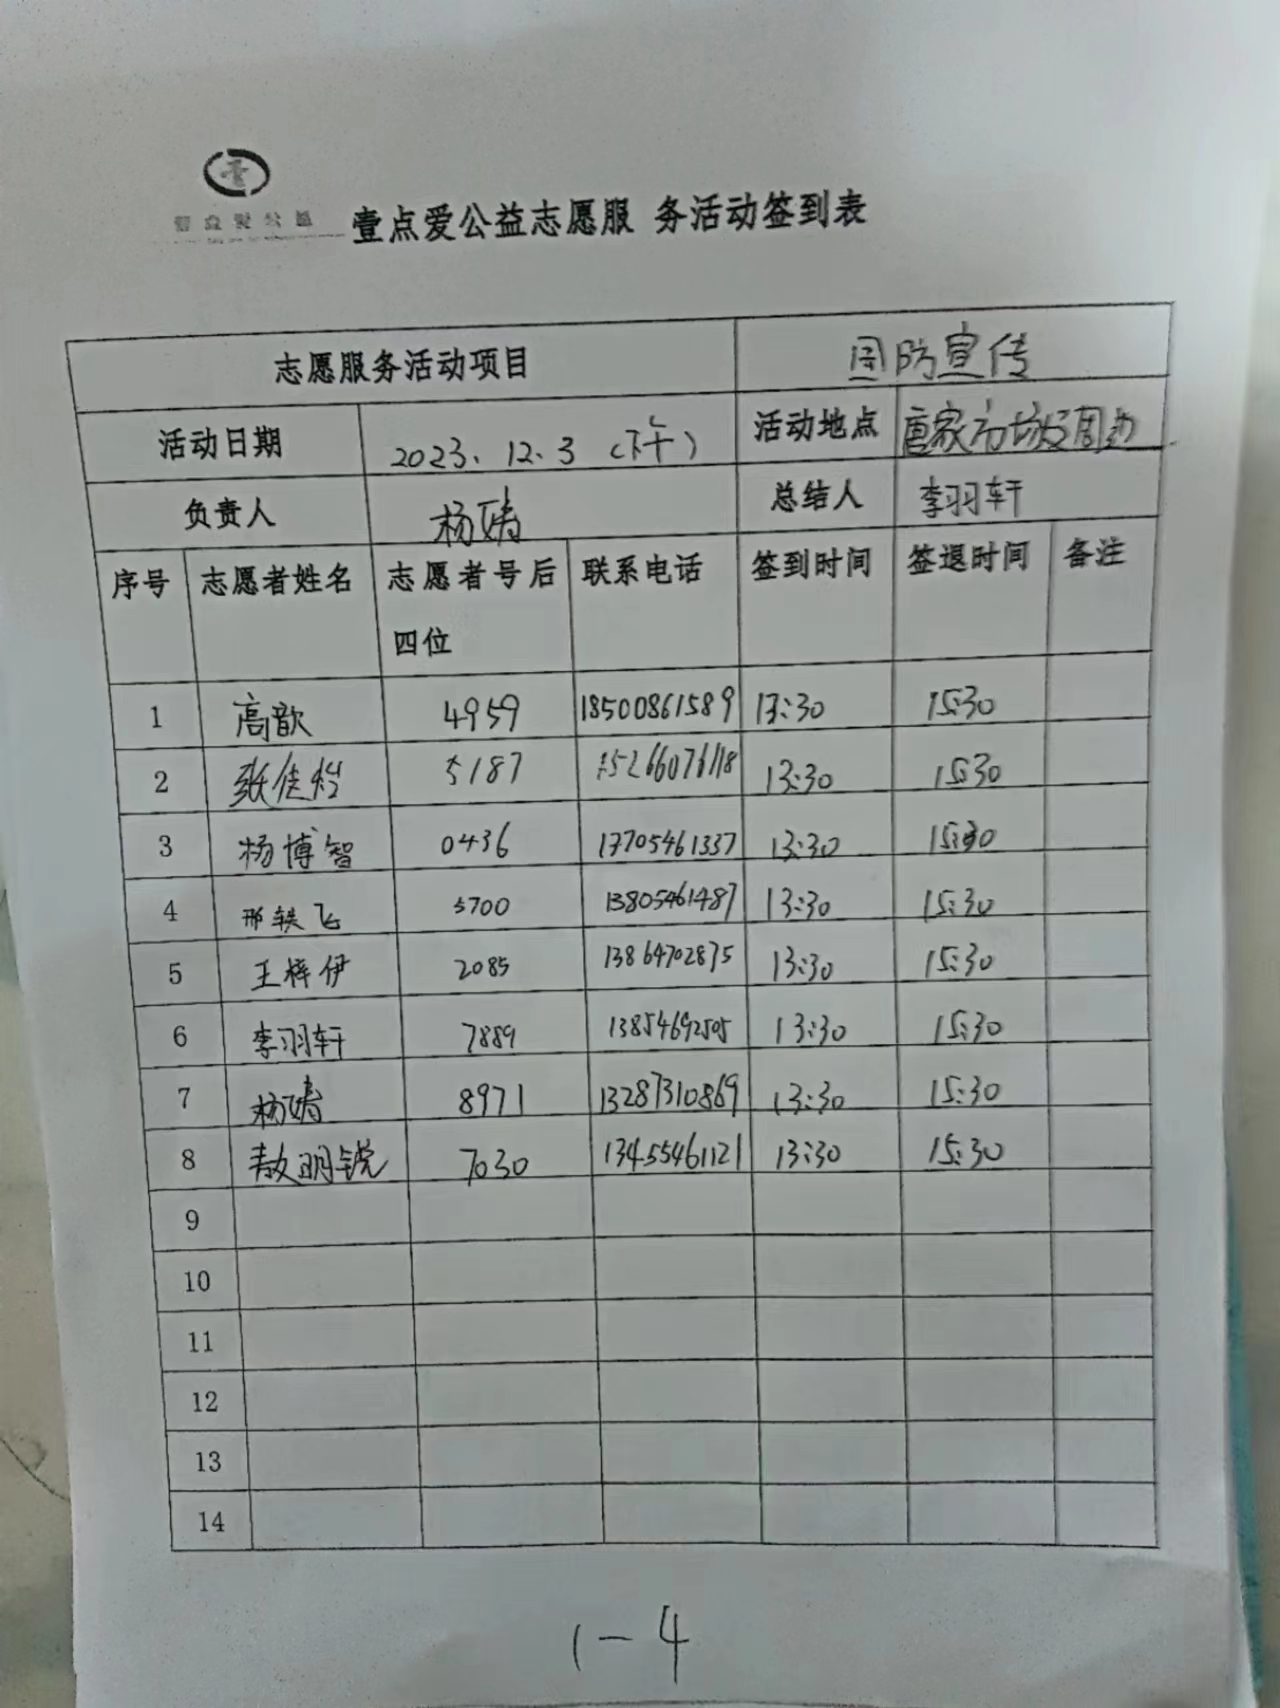 壹点爱公益
壹点爱公益志愿服 务活动签到表
志愿服务活动项目 国防宣传
活动日期 2023.12.3 (下午) 活动地点 唐家市场及周边
负责人 杨婧 总结人 李羽轩
序号 志愿者姓名 志愿者号后四位 联系电话 签到时间 签退时间 备注
1 高歆 4959 18500861589 13:30 15:30
2 张佳灿 5187 15266076118 13:30 15:30
3 杨博智 0436 17705461337 13:30 15:30
4 邢轶飞 5700 13805461487 13:30 15:30
5 王梓伊 2085 13864702875 13:30 15:30
6 李羽轩 7889 13854692505 13:30 15:30
7 杨婧 8971 13287310869 13:30 15:30
8 敖明锐 7030 13455461121 13:30 15:30
9
10
11
12
13
14
1-4